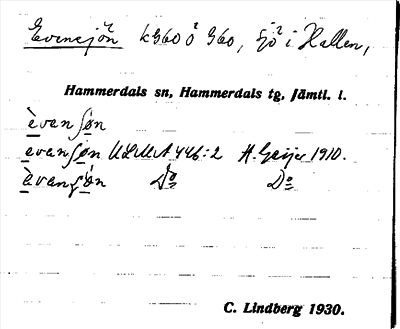 Evensjön k360 ö 360, sjö i Hallen,
Hammerdals sn, Hammerdals tg, Jämtl. l.
èvanʃön
evanʃön ULMA 446:2 H. Geijer 1910.
àvanʃön Do Do
C. Lindberg 1930.